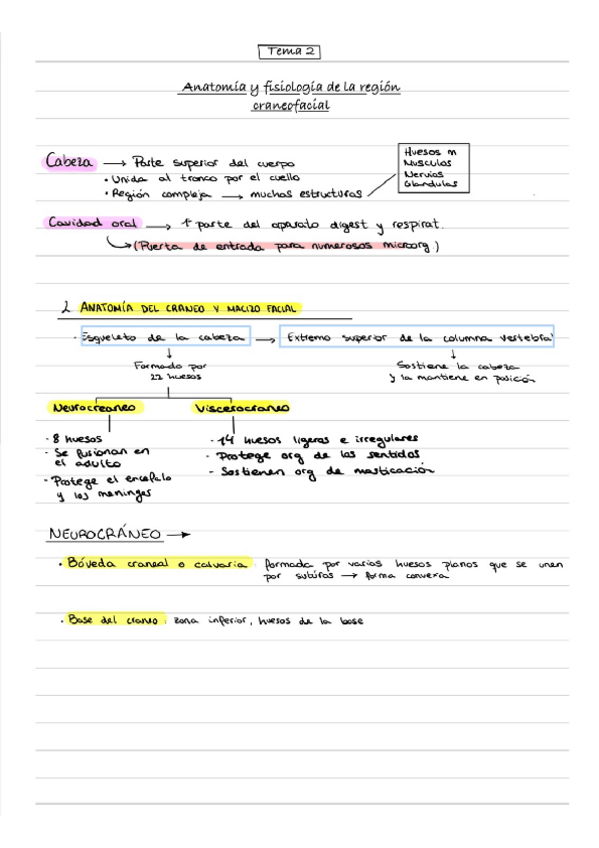 Tema 2
Anatomía y fisiología de la región
craneofacial
Cabeza → Parte superior del cuerpo
• Unida al tronco por el cuello
• Región compleja → muchas estructuras
Huesos m
Musculos
Nervios
Glandulas
Cavidad oral → 1 parte del aparato digest y respirat.
(Puerta de entrada para numerosos microorg)
ANATOMÍA DEL CRANEO Y MACIZO FACIAL
· Esqueleto de la cabeza → Extremo superior de la columna vertebral
Formado por
22 huesos
Sostiene la cabeza
y la mantiene en posición
Neurocraneo
Viscerocraneo
· 8 huesos
· Se fusionan en
el adulto
· Protege el encefalo
y las meninges
· 14 huesos ligeros e irregulares
· Protege org de los sentidos
· Sostienen org de masticación
NEUROCRÁNEO →
· Bóveda craneal o calvaria: formada por varios huesos planos que se unen
por suturas → forma convexa
· Base del craneo: zona inferior, huesos de la base